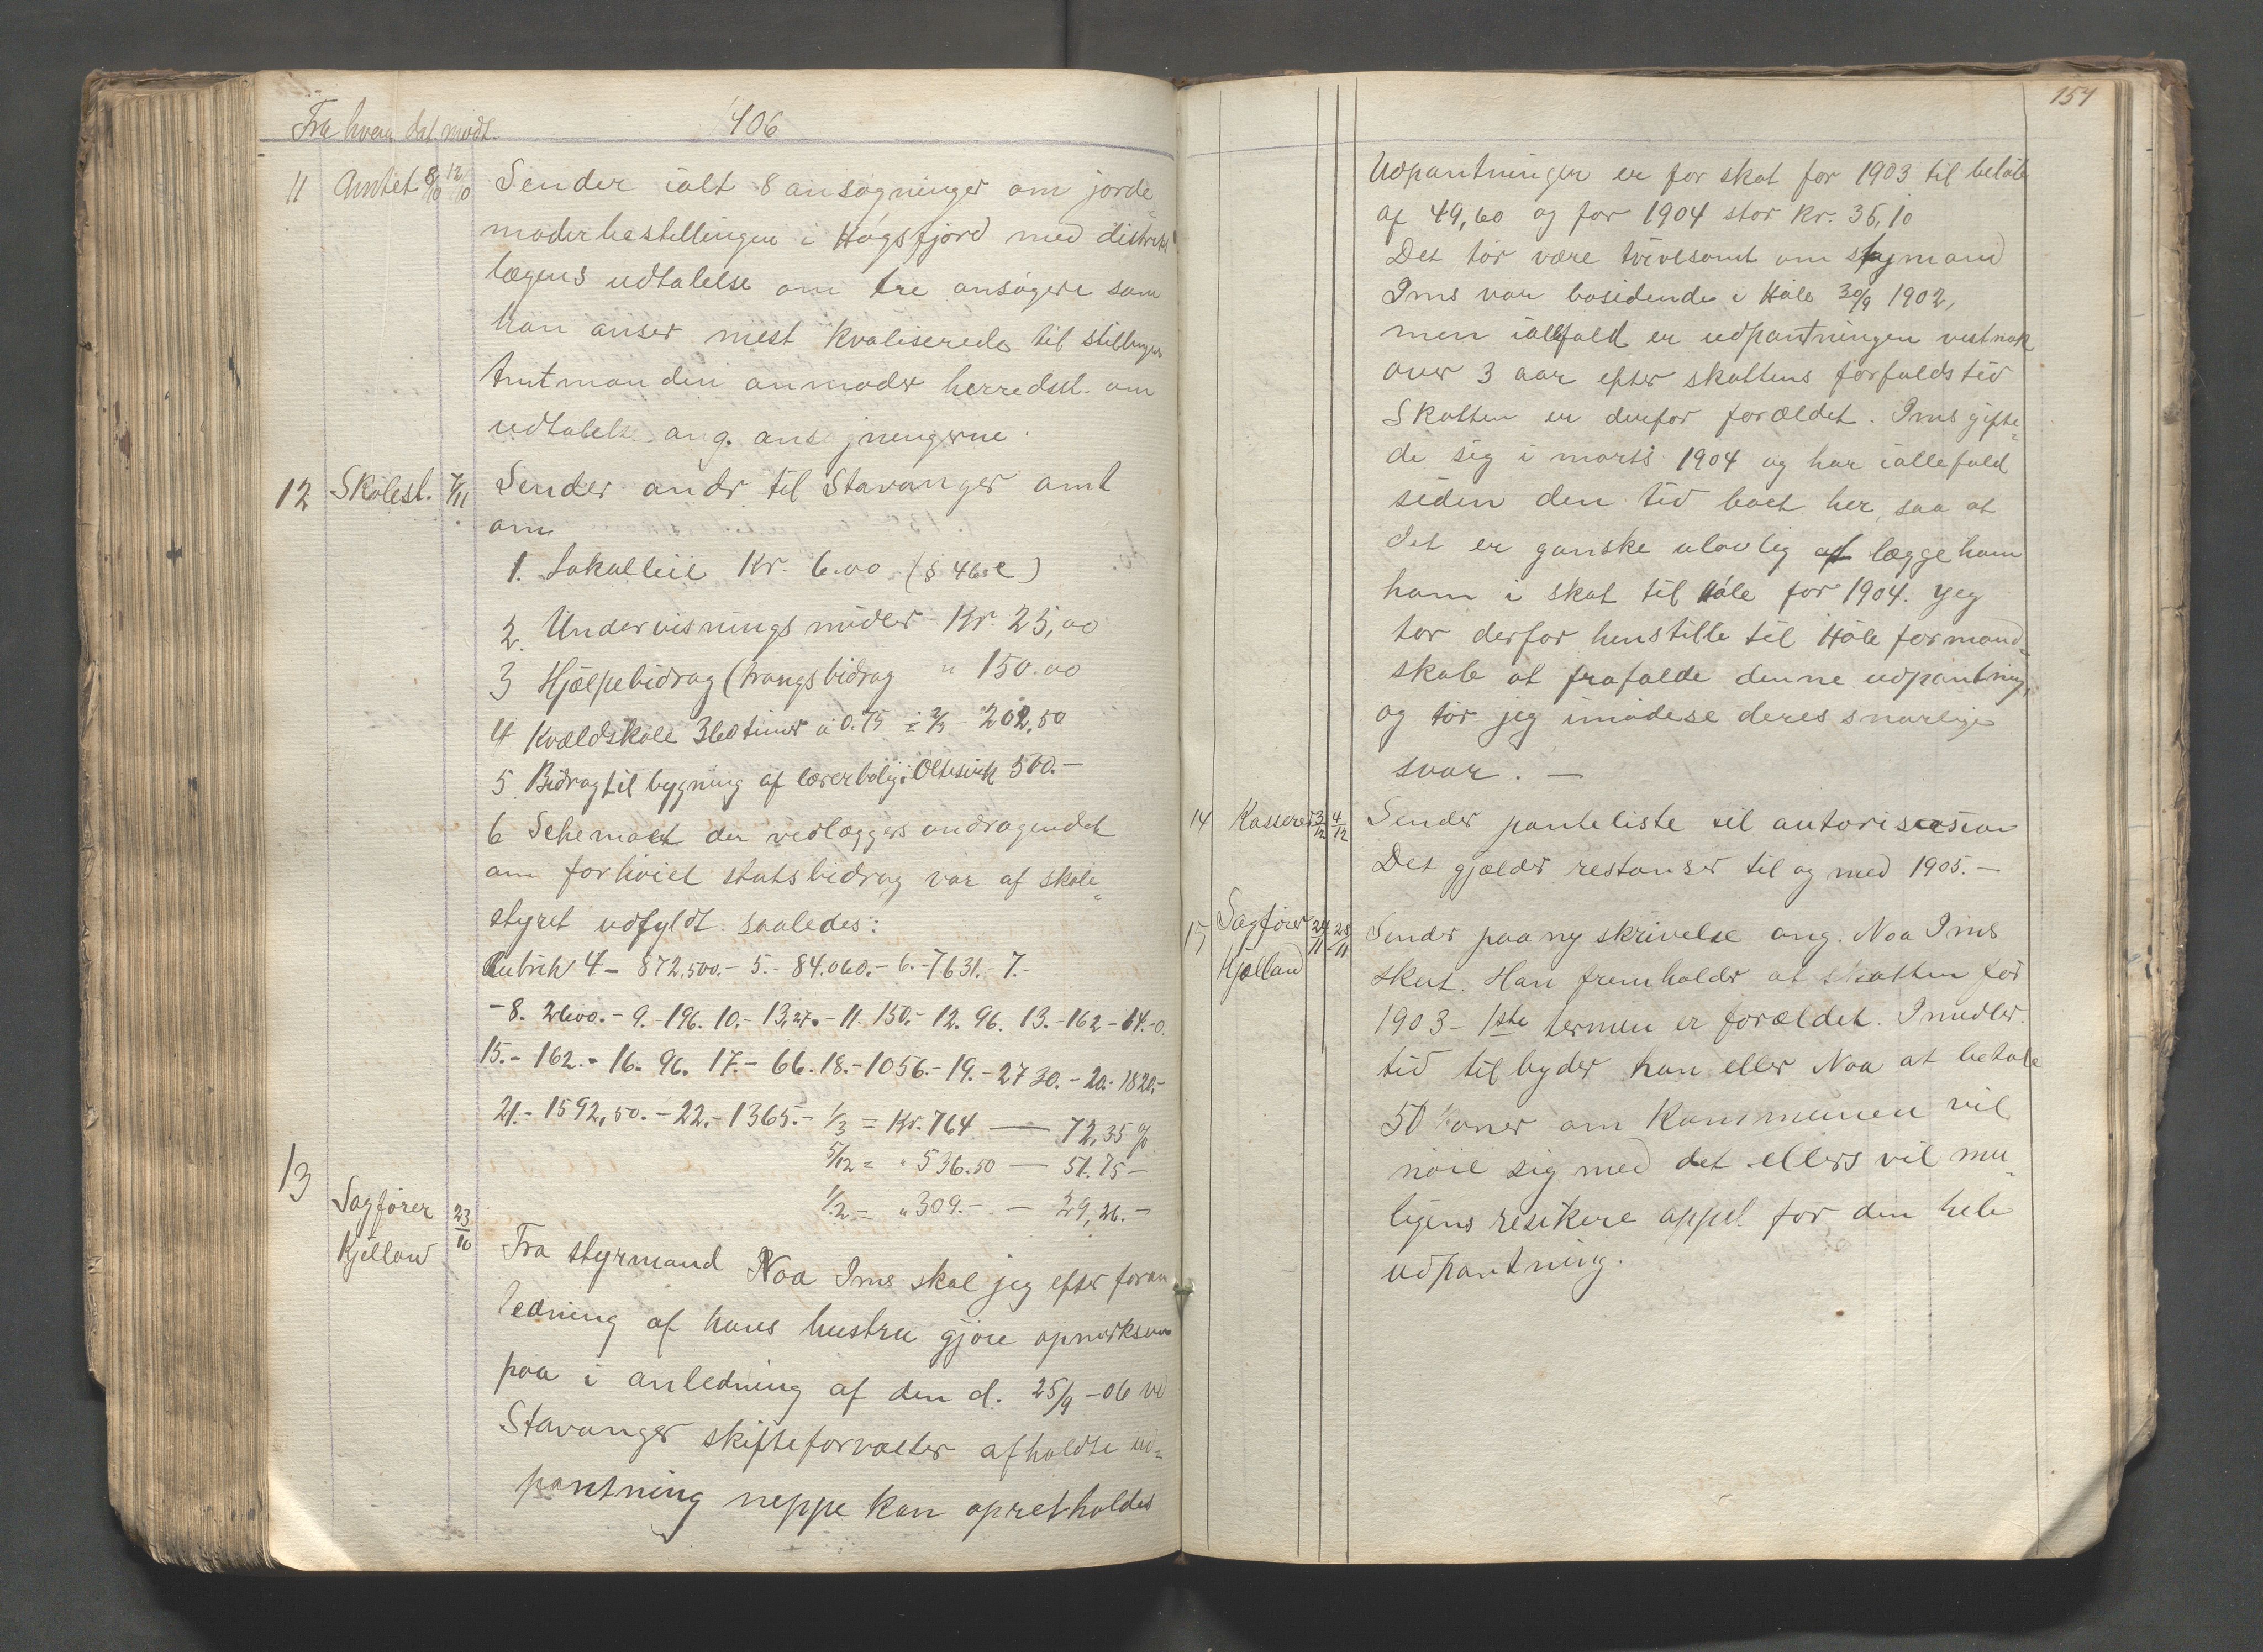 Fra hvem dat modt. 406
11 Amtet 8/10 12/10 Sender ialt 8 ansøgninger om jorde-
moderbestillingen i Høgsfjord med distrikts
lægens udtalelse om tre ansøgere som
han anser mest kvaliserede til stillingen
Amtmanden anmoder herredsst. om
udtalelse ang. ansøgningerne.
12 Skolest. 7/11 Sender andr til Stavanger amt
om
1. Lokalleie Kr. 6.00 (§ 46 e)
2. Undervisningsmidler Kr. 25,00
3 Hjælpebidrag (trangsbidrag " 150.00
4 Kvældskole 360 timer a 0.75 = 2/3 202,50
5 Bidrag til bygning af lærerbolig i Oltesvik 500.-
6 Schemaet der vedlægges andragendet
om forhøiet statsbidrag var af skole-
styret udfyldt saaledes:
Rubrik 4 - 872,500.- 5.- 84.060.- 6.- 7.631.- 7.-
- 8. 2600.- 9.- 196. 10.- 13,27.- 11. 150.- 12. 96. 13.- 162 - 14.- 0.
15.- 162.- 16. 96. 17.- 66. 18.- 1056.- 19.- 2730.- 20.- 1820.-
21.- 1592,50.- 22.- 1365.- 1/3 = Kr. 764 — 72,35 %
5/12 = " 536.50 — 51.75 -
1/2 = " 309.- — 29,26.-
13 Sagfører Kjelland 23/10 Fra styrmand Noa Ims skal jeg efter foran
ledning af hans hustru gjøre opmerksom
paa i anledning af den d. 25/9 -06 ved
Stavanger skifteforvalter afholdte ud-
pantning neppe kan opretholdes
157
Udpantningen er for skat for 1903 til beløb
af 49,60 og for 1904 stor Kr. 36,10
Det tør være tvivlsomt om styrmand
Ims var bosidende i Høle 30/9 1902,
men iallefald er udpantningen vistnok
over 3 aar efter skattens forfaldstid
Skatten er derfor forældet. Ims gifte-
de sig i marts 1904 og har iallefald
siden den tid boet her, saa at
det er ganske ulovlig at lægge ham
ham i skat til Høle for 1904. Jeg
tør derfor henstille til Høle formand-
skab at frafalde denne udpantning,
og tør jeg imødese deres snarlige
svar. —
14 Kasserer 3/12 4/12 Sender panteliste til autorisasion
Det gjælder restanser til og med 1905. —
15 Sagfører Kjelland 24/11 25/11 Sender paa ny skrivelse ang. Noa Ims
skat. Han fremholder at skatten for
1903 - 1ste termin er forældet. Imidler-
tid tilbyder han eller Noa at betale
50 kroner om Kommunen vil
nøie sig med det ellers vil mu-
ligens resikere appel for den hele
udpantning.